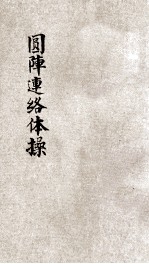 圓陣連絡体操